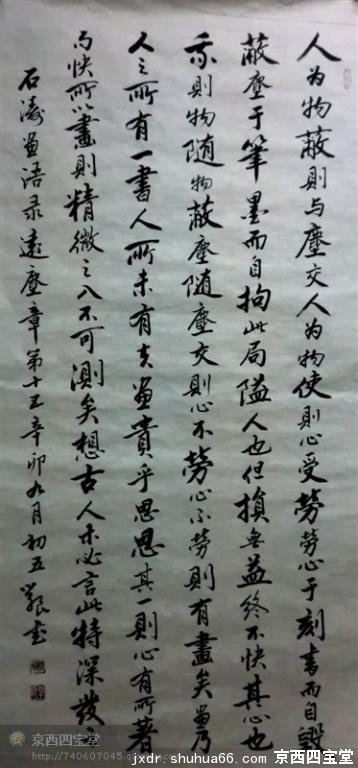 人为物蔽則与塵交人为物使則心受劳劳心于刻畫而自毁
蔽塵于筆墨而自拘此局隘人也但損無益终不快其心也
我則物随物蔽塵随塵交則心不劳心不劳則有畫矣畫乃
人之所有一畫人所未有夫畫貴乎思思其一則心有所著
而快所以畫則精微之入不可測矣想古人未必言此特深發
石涛画语录遠塵章第十五辛卯九月初五
京西四宝堂
http://740607045.
jxdr.shuhua66.com 京西四宝堂